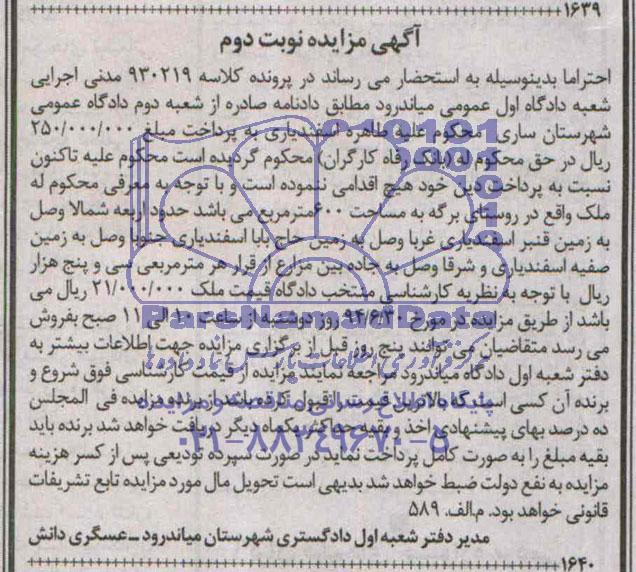 ۱۶۳۹
آگهی مزایده نوبت دوم
احتراما بدینوسیله به استحضار می رساند در پرونده کلاسه ۹۳۰۲۱۹ مدنی اجرایی
شعبه دادگاه اول عمومی میاندرود مطابق دادنامه صادره از شعبه دوم دادگاه عمومی
شهرستان ساری محکوم علیه طاهره اسفندیاری به پرداخت مبلغ ۲۵۰/۰۰۰/۰۰۰
ریال در حق محکوم له (بانک رفاه کارگران) محکوم گردیده است محکوم علیه تاکنون
نسبت به پرداخت دین خود هیچ اقدامی ننموده است و با توجه به معرفی محکوم له
ملک واقع در روستای برگه به مساحت ۶۰۰مترمربع می باشد حدود اربعه شمالا وصل
به زمین قنبر اسفندیاری غربا وصل به زمین حاج بابا اسفندیاری جنوبا وصل به زمین
صفیه اسفندیاری و شرقا وصل به جاده بین مزارع از قرار هر مترمربعی سی و پنج هزار
ریال با توجه به نظریه کارشناسی منتخب دادگاه قیمت ملک ۲۱/۰۰۰/۰۰۰ ریال می
باشد از طریق مزایده در مورخ ۹۴/۶/۳۰ روز دوشنبه از ساعت ۱۰ الی ۱۱ صبح بفروش
می رسد متقاضیان می توانند پنج روز قبل از برگزاری مزائده جهت اطلاعات بیشتر به
دفتر شعبه اول دادگاه میاندرود مراجعه نمایند مزایده از قیمت کارشناسی فوق شروع و
برنده آن کسی است که بالاترین قیمت را قبول کرده باشد از برنده مزایده فی المجلس
ده درصد بهای پیشنهادی اخذ و بقیه حداکثر یکماه دیگر دریافت خواهد شد برنده باید
بقیه مبلغ را به صورت کامل پرداخت نماید در صورت سپرده تودیعی پس از کسر هزینه
مزایده به نفع دولت ضبط خواهد شد بدیهی است تحویل مال مورد مزایده تابع تشریفات
قانونی خواهد بود. م.الف. ۵۸۹
مدیر دفتر شعبه اول دادگستری شهرستان میاندرود ـ عسگری دانش
۱۶۴۰
ParsNamadData
پایگاه اطلاع رسانی مناقصه و مزایده
۰۲۱-۸۸۳۴۹۶۷۰-۵